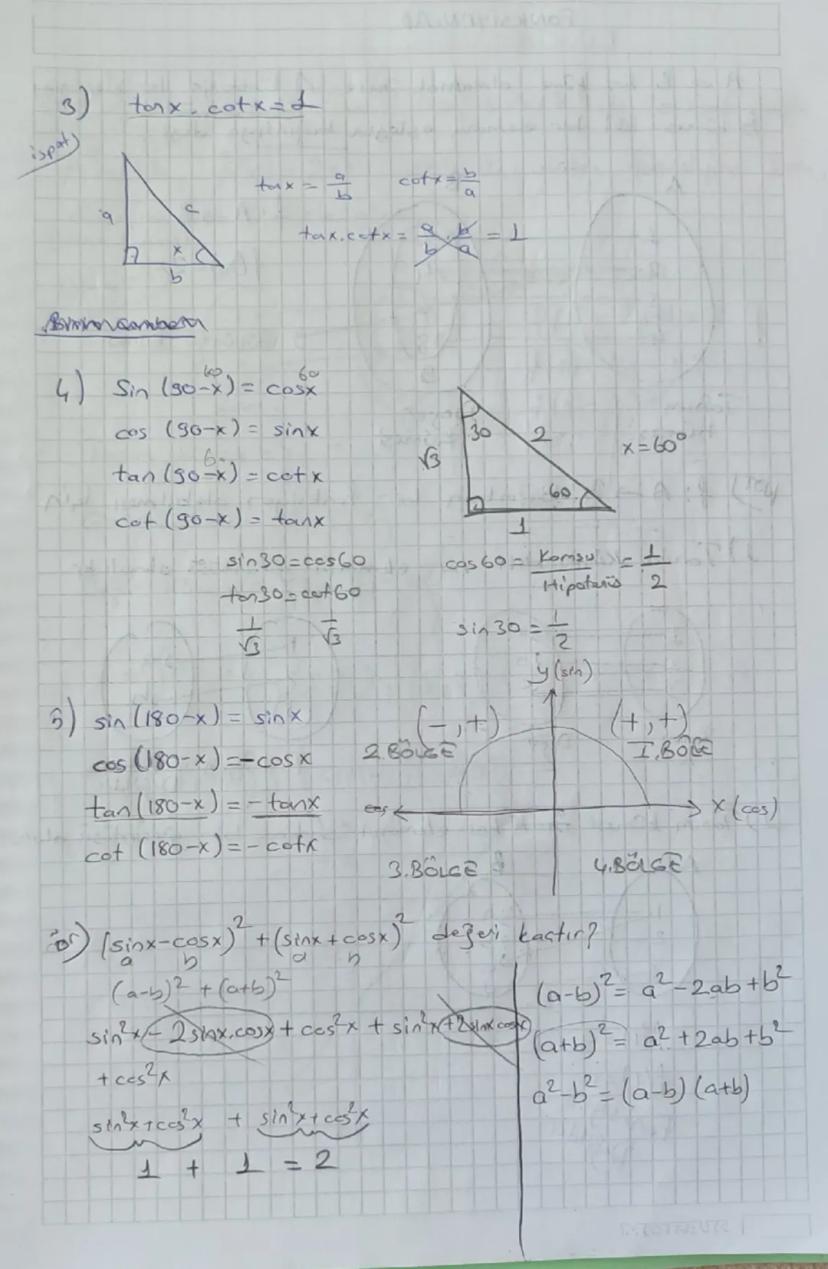 3) tanx . cotx = 1
ispat)
a
c
x
b
tanx = a/b cotx = b/a
tanx.cotx = a/b . b/a = 1
4) Sin (90-x) = cosx
60
60
cos (90-x) = sinx
tan (90-x) = cotx
cot (90-x) = tanx
30
2
√3
60
1
x=60°
sin30 = cos60
tan30 = cot60
1/√3 1/√3
cos60 = Komşu/Hipotenüs = 1/2
sin30 = 1/2
y (sin)
5) sin (180-x) = sinx
cos (180-x) = -cosx
tan (180-x) = -tanx
cot (180-x) = -cotx
(-,+) (+,+)
2.BÖLGE I.BÖLGE
cos x (cos)
3.BÖLGE 4.BÖLGE
ör) (sinx-cosx)² + (sinx+cosx)² değeri kaçtır?
a b a b
(a-b)² + (a+b)²
sin²x - 2sinx.cosx + cos²x + sin²x + 2sinxcosx
+ cos²x
sin²x+cos²x + sin²x+cos²x
1 + 1 = 2
(a-b)² = a²-2ab+b²
(a+b)² = a²+2ab+b²
a²-b² = (a-b) (a+b)